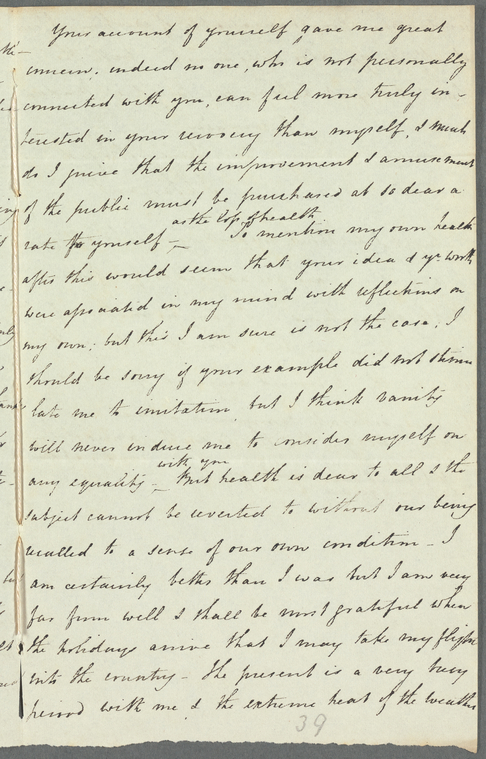 Your account of yourself gave me great
concern. indeed no one, who is not personally
connected with you, can feel more truly in-
terested in your recovery than myself, & much
do I grieve that the improvement & amusement
of the public must be purchased at so dear a
as the loss of health
rate to yourself — To mention my own health
after this would seem that your idea & yr. worth
were associated in my mind with reflections on
my own; but this I am sure is not the case. I
should be sorry if your example did not stimu
late me to imitation but I think vanity
will never induce me to consider myself on
with you
any equality — But health is dear to all & the
subject cannot be reverted to without our being
recalled to a sense of our own condition — I
am certainly better than I was but I am very
far from well & shall be most grateful when
the holidays arrive that I may take my flight
into the country — The present is a very busy
period with me & the extreme heat of the weather
39